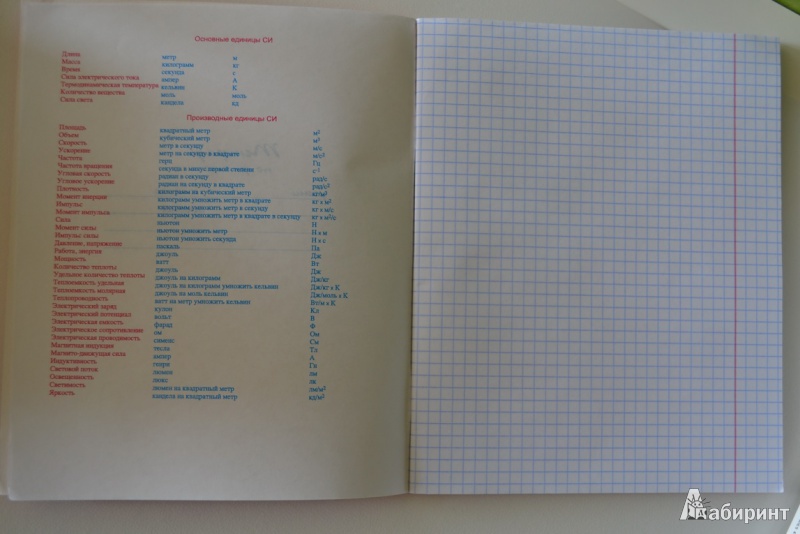 Основные единицы СИ
Длина метр м
Масса килограмм кг
Время секунда с
Сила электрического тока ампер А
Термодинамическая температура кельвин К
Количество вещества моль моль
Сила света кандела кд
Производные единицы СИ
Площадь квадратный метр м²
Объем кубический метр м³
Скорость метр в секунду м/с
Ускорение метр на секунду в квадрате м/с²
Частота герц Гц
Частота вращения секунда в минус первой степени с⁻¹
Угловая скорость радиан в секунду рад/с
Угловое ускорение радиан на секунду в квадрате рад/с²
Плотность килограмм на кубический метр кг/м³
Момент инерции килограмм умножить метр в квадрате кг х м²
Импульс килограмм умножить метр в секунду кг х м/с
Момент импульса килограмм умножить метр в квадрате в секунду кг х м²/с
Сила ньютон Н
Момент силы ньютон умножить метр Н х м
Импульс силы ньютон умножить секунда Н х с
Давление, напряжение паскаль Па
Работа, энергия джоуль Дж
Мощность ватт Вт
Количество теплоты джоуль Дж
Удельное количество теплоты джоуль на килограмм Дж/кг
Теплоемкость удельная джоуль на килограмм умножить кельвин Дж/кг х К
Теплоемкость молярная джоуль на моль кельвин Дж/моль х К
Теплопроводность ватт на метр умножить кельвин Вт/м х К
Электрический заряд кулон Кл
Электрический потенциал вольт В
Электрическая емкость фарад Ф
Электрическое сопротивление ом Ом
Электрическая проводимость сименс См
Магнитная индукция тесла Тл
Магнито-движущая сила ампер А
Индуктивность генри Гн
Световой поток люмен лм
Освещенность люкс лк
Светимость люмен на квадратный метр лм/м²
Яркость кандела на квадратный метр кд/м²
Лабиринт